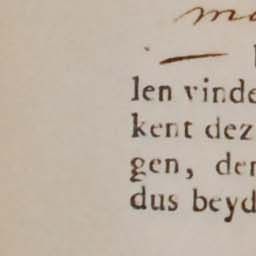 len vinde
kent dez
gen, der
dus beyd